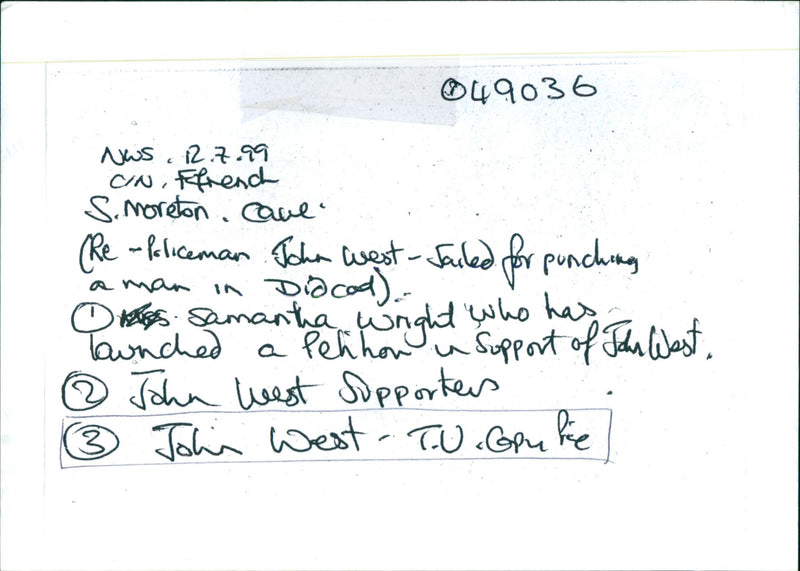 049036
NWS. 12.7.99
C/N. Ffrench
S. Moreton. Cave.
(Re - Policeman John West - Jailed for punching
a man in Didcot).
① Samantha Wright who has
launched a Petition in Support of John West.
② John West Supporters
③ John West - T.V. Copy Pic